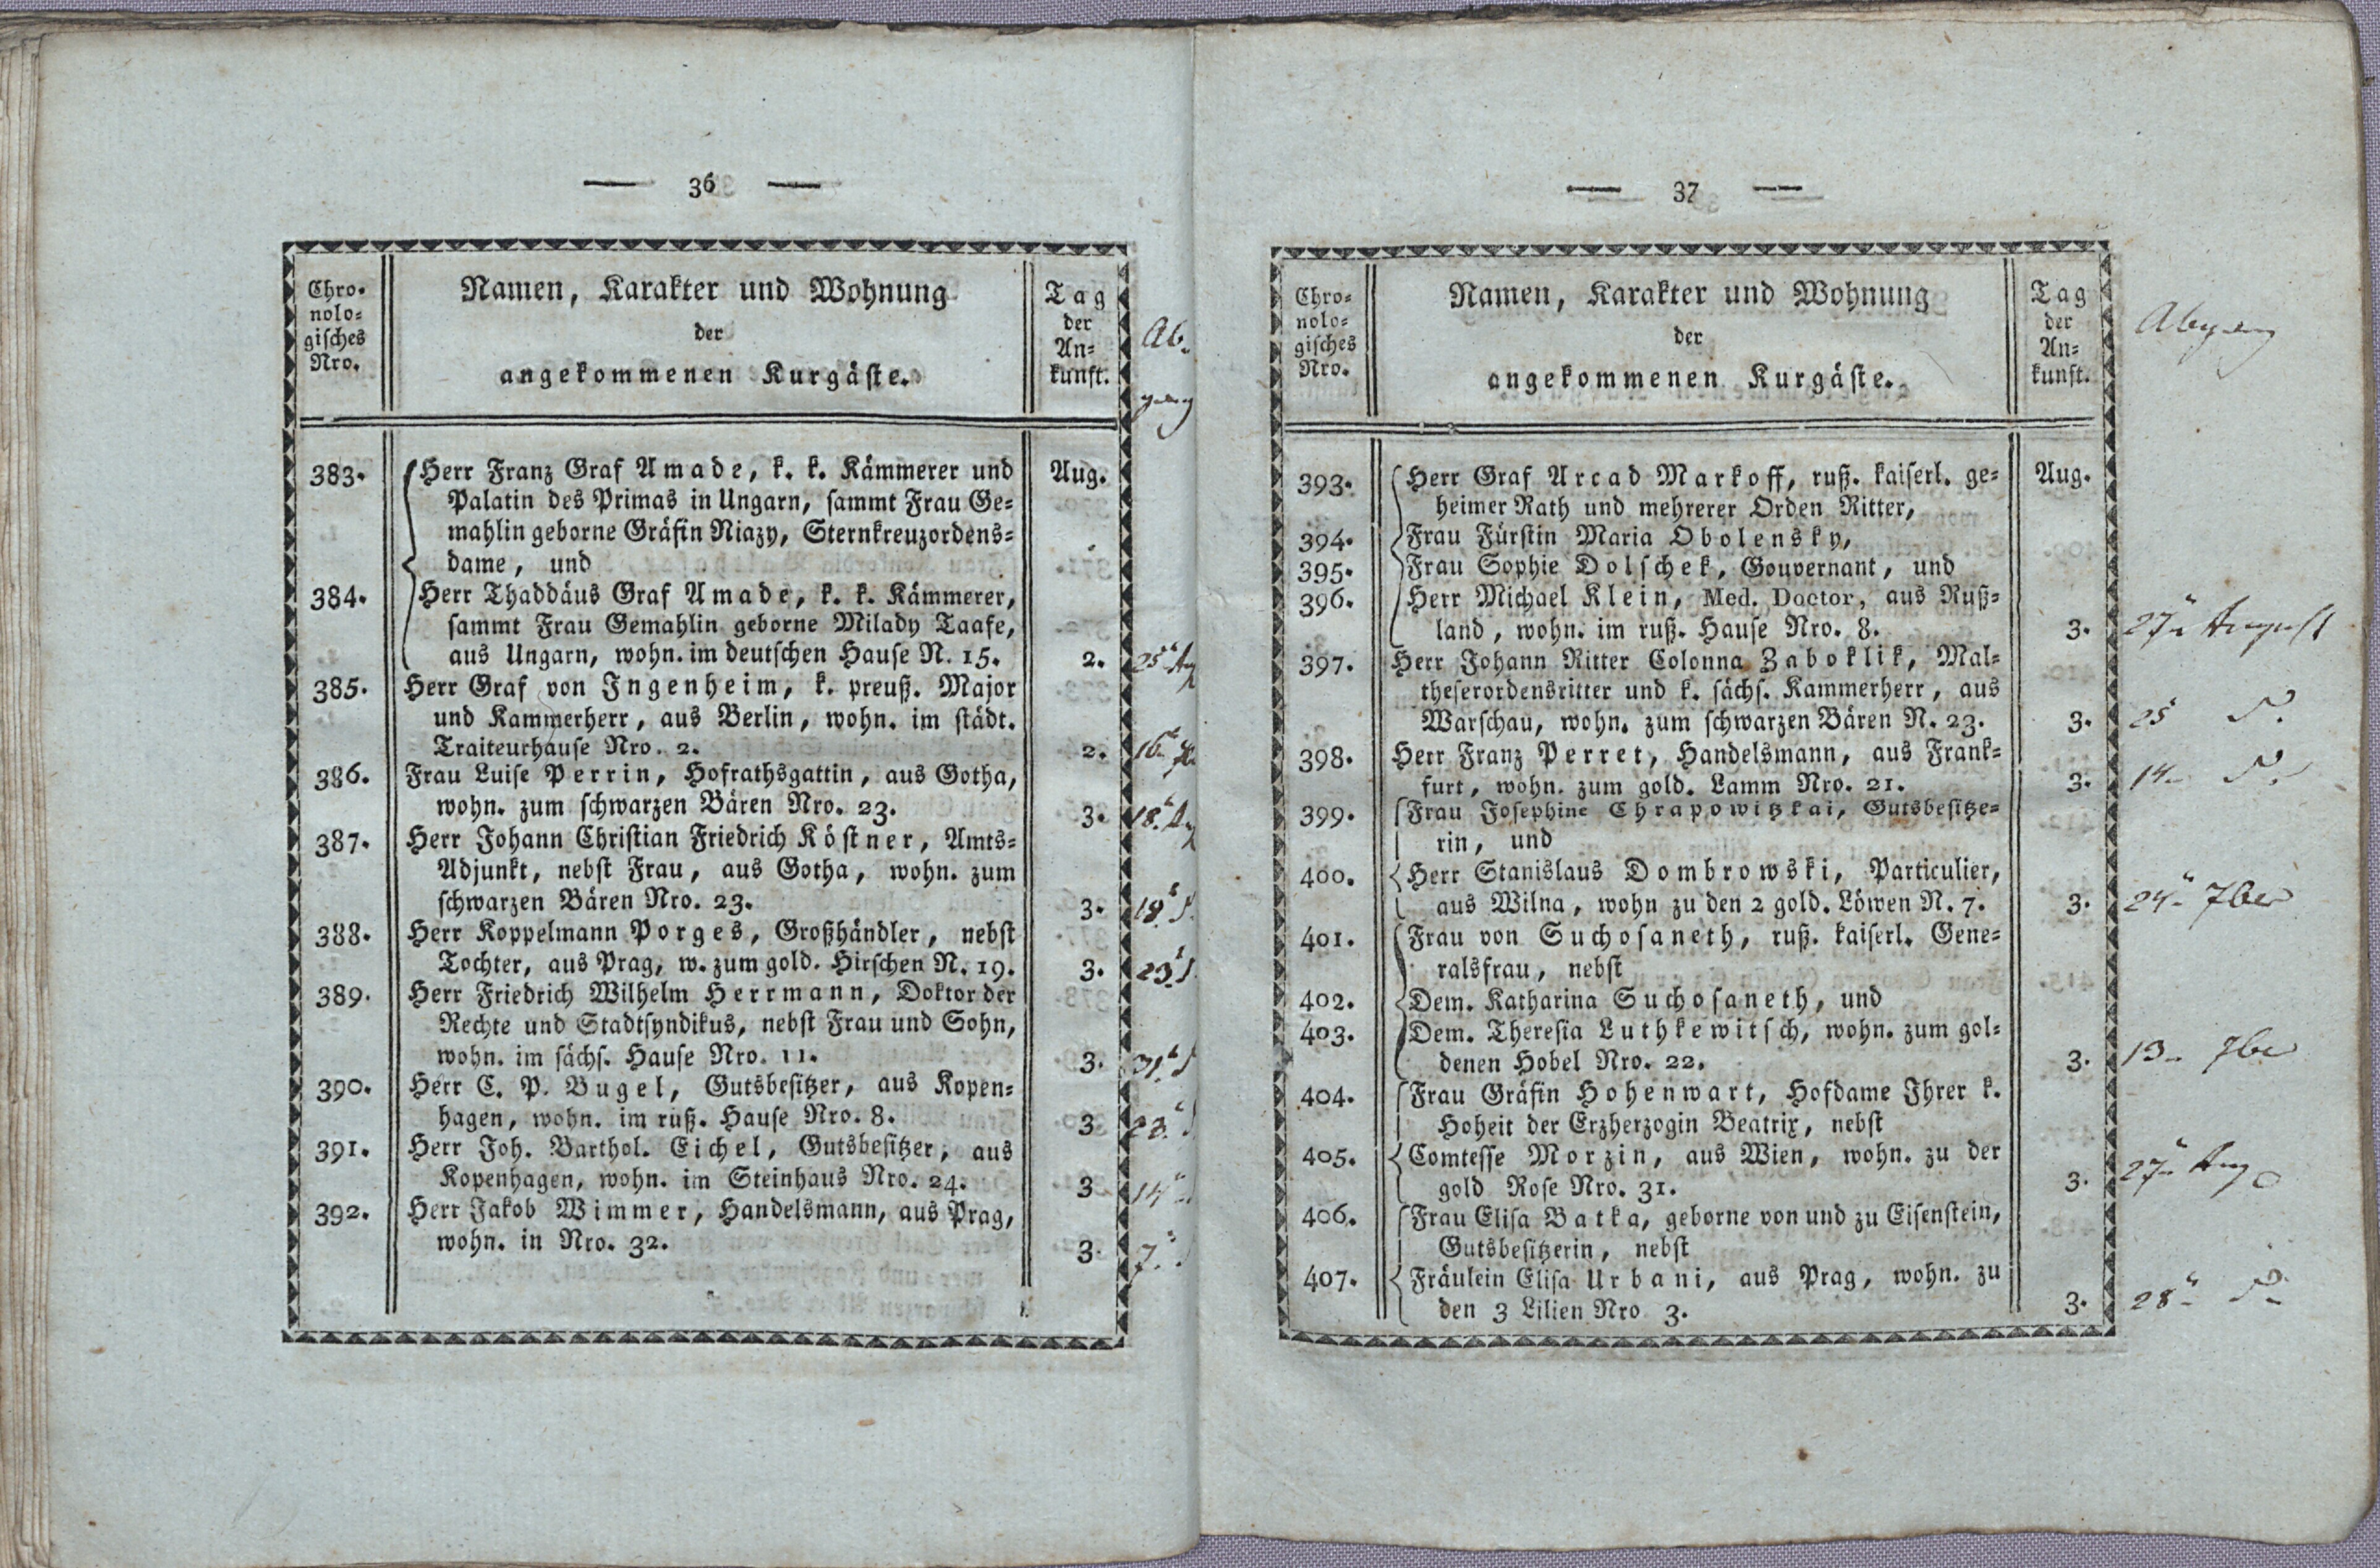 — 36 —
Chro-
nolo-
gisches
Nro.
Namen, Karakter und Wohnung
der
angekommenen Kurgäste.
Tag
der
An-
kunft.
Ab-
gang
383. Herr Franz Graf Amade, k. k. Kämmerer und Aug.
Palatin des Primas in Ungarn, sammt Frau Ge-
mahlin geborne Gräfin Niazy, Sternkreuzordens-
dame, und
384. Herr Thaddäus Graf Amade, k. k. Kämmerer,
sammt Frau Gemahlin geborne Milady Taafe,
aus Ungarn, wohn. im deutschen Hause N. 15. 2. 25 Aug
385. Herr Graf von Ingenheim, k. preuß. Major
und Kammerherr, aus Berlin, wohn. im städt.
Traiteurhause Nro. 2. 2. 16
386. Frau Luise Perrin, Hofrathsgattin, aus Gotha,
wohn. zum schwarzen Bären Nro. 23. 3. 18. Aug
387. Herr Johann Christian Friedrich Köstner, Amts-
Adjunkt, nebst Frau, aus Gotha, wohn. zum
schwarzen Bären Nro. 23. 3. 18.
388. Herr Koppelmann Porges, Großhändler, nebst
Tochter, aus Prag, w. zum gold. Hirschen N. 19. 3. 23
389. Herr Friedrich Wilhelm Herrmann, Doktor der
Rechte und Stadtsyndikus, nebst Frau und Sohn,
wohn. im sächs. Hause Nro. 11. 3. 31.
390. Herr C. P. Bugel, Gutsbesitzer, aus Kopen-
hagen, wohn. im ruß. Hause Nro. 8. 3
391. Herr Joh. Barthol. Eichel, Gutsbesitzer, aus
Kopenhagen, wohn. im Steinhaus Nro. 24. 3 14
392. Herr Jakob Wimmer, Handelsmann, aus Prag,
wohn. in Nro. 32. 3. 7.
— 37 —
Chro-
nolo-
gisches
Nro.
Namen, Karakter und Wohnung
der
angekommenen Kurgäste.
Tag
der
An-
kunft.
Abgang
393. Herr Graf Arcad Markoff, ruß. kaiserl. ge- Aug.
heimer Rath und mehrerer Orden Ritter,
394. Frau Fürstin Maria Obolensky,
395. Frau Sophie Dolschek, Gouvernant, und
396. Herr Michael Klein, Med. Doctor, aus Ruß-
land, wohn. im ruß. Hause Nro. 8. 3. 27 August
397. Herr Johann Ritter Colonna Zaboklik, Mal-
theserordensritter und k. sächs. Kammerherr, aus
Warschau, wohn. zum schwarzen Bären N. 23. 3. 25
398. Herr Franz Perret, Handelsmann, aus Frank-
furt, wohn. zum gold. Lamm Nro. 21. 3. 14
399. Frau Josephine Chrapowitzkai, Gutsbesitze-
rin, und
400. Herr Stanislaus Dombrowski, Particulier,
aus Wilna, wohn zu den 2 gold. Löwen N. 7. 3. 24 7ber
401. Frau von Suchosaneth, ruß. kaiserl. Gene-
ralsfrau, nebst
402. Dem. Katharina Suchosaneth, und
403. Dem. Theresia Luthkewitsch, wohn. zum gol-
denen Hobel Nro. 22. 3. 13 7ber
404. Frau Gräfin Hohenwart, Hofdame Ihrer k.
Hoheit der Erzherzogin Beatrix, nebst
405. Comtesse Morzin, aus Wien, wohn. zu der
gold Rose Nro. 31. 3. 27 Aug
406. Frau Elisa Batka, geborne von und zu Eisenstein,
Gutsbesitzerin, nebst
407. Fräulein Elisa Urbani, aus Prag, wohn. zu
den 3 Lilien Nro 3. 3. 28